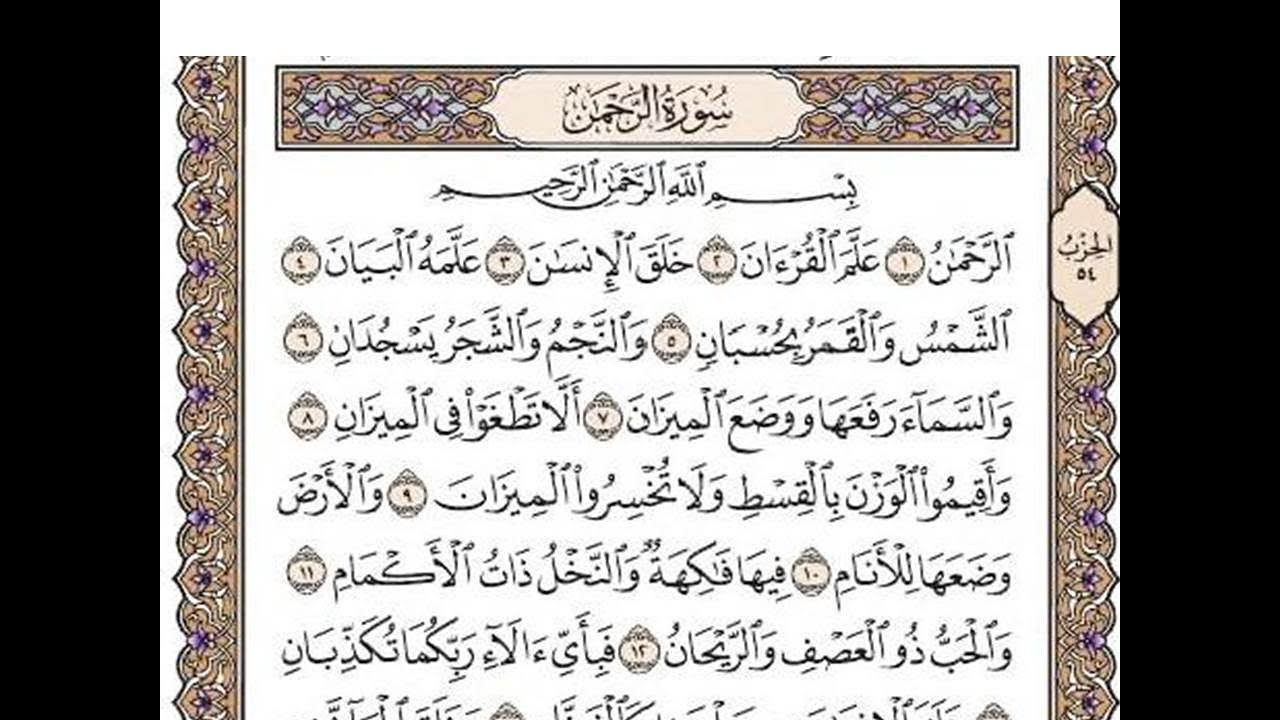 سُورَةُ الرَّحْمَٰن
بِسْمِ ٱللَّهِ ٱلرَّحْمَٰنِ ٱلرَّحِيمِ
ٱلرَّحْمَٰنُ ١ عَلَّمَ ٱلْقُرْءَانَ ٢ خَلَقَ ٱلْإِنسَٰنَ ٣ عَلَّمَهُ ٱلْبَيَانَ ٤
الحِزْبُ
٥٤
ٱلشَّمْسُ وَٱلْقَمَرُ بِحُسْبَانٍ ٥ وَٱلنَّجْمُ وَٱلشَّجَرُ يَسْجُدَانِ ٦
وَٱلسَّمَآءَ رَفَعَهَا وَوَضَعَ ٱلْمِيزَانَ ٧ أَلَّا تَطْغَوْا۟ فِى ٱلْمِيزَانِ ٨
وَأَقِيمُوا۟ ٱلْوَزْنَ بِٱلْقِسْطِ وَلَا تُخْسِرُوا۟ ٱلْمِيزَانَ ٩ وَٱلْأَرْضَ
وَضَعَهَا لِلْأَنَامِ ١٠ فِيهَا فَٰكِهَةٌ وَٱلنَّخْلُ ذَاتُ ٱلْأَكْمَامِ ١١
وَٱلْحَبُّ ذُو ٱلْعَصْفِ وَٱلرَّيْحَانُ ١٢ فَبِأَىِّ ءَالَآءِ رَبِّكُمَا تُكَذِّبَانِ